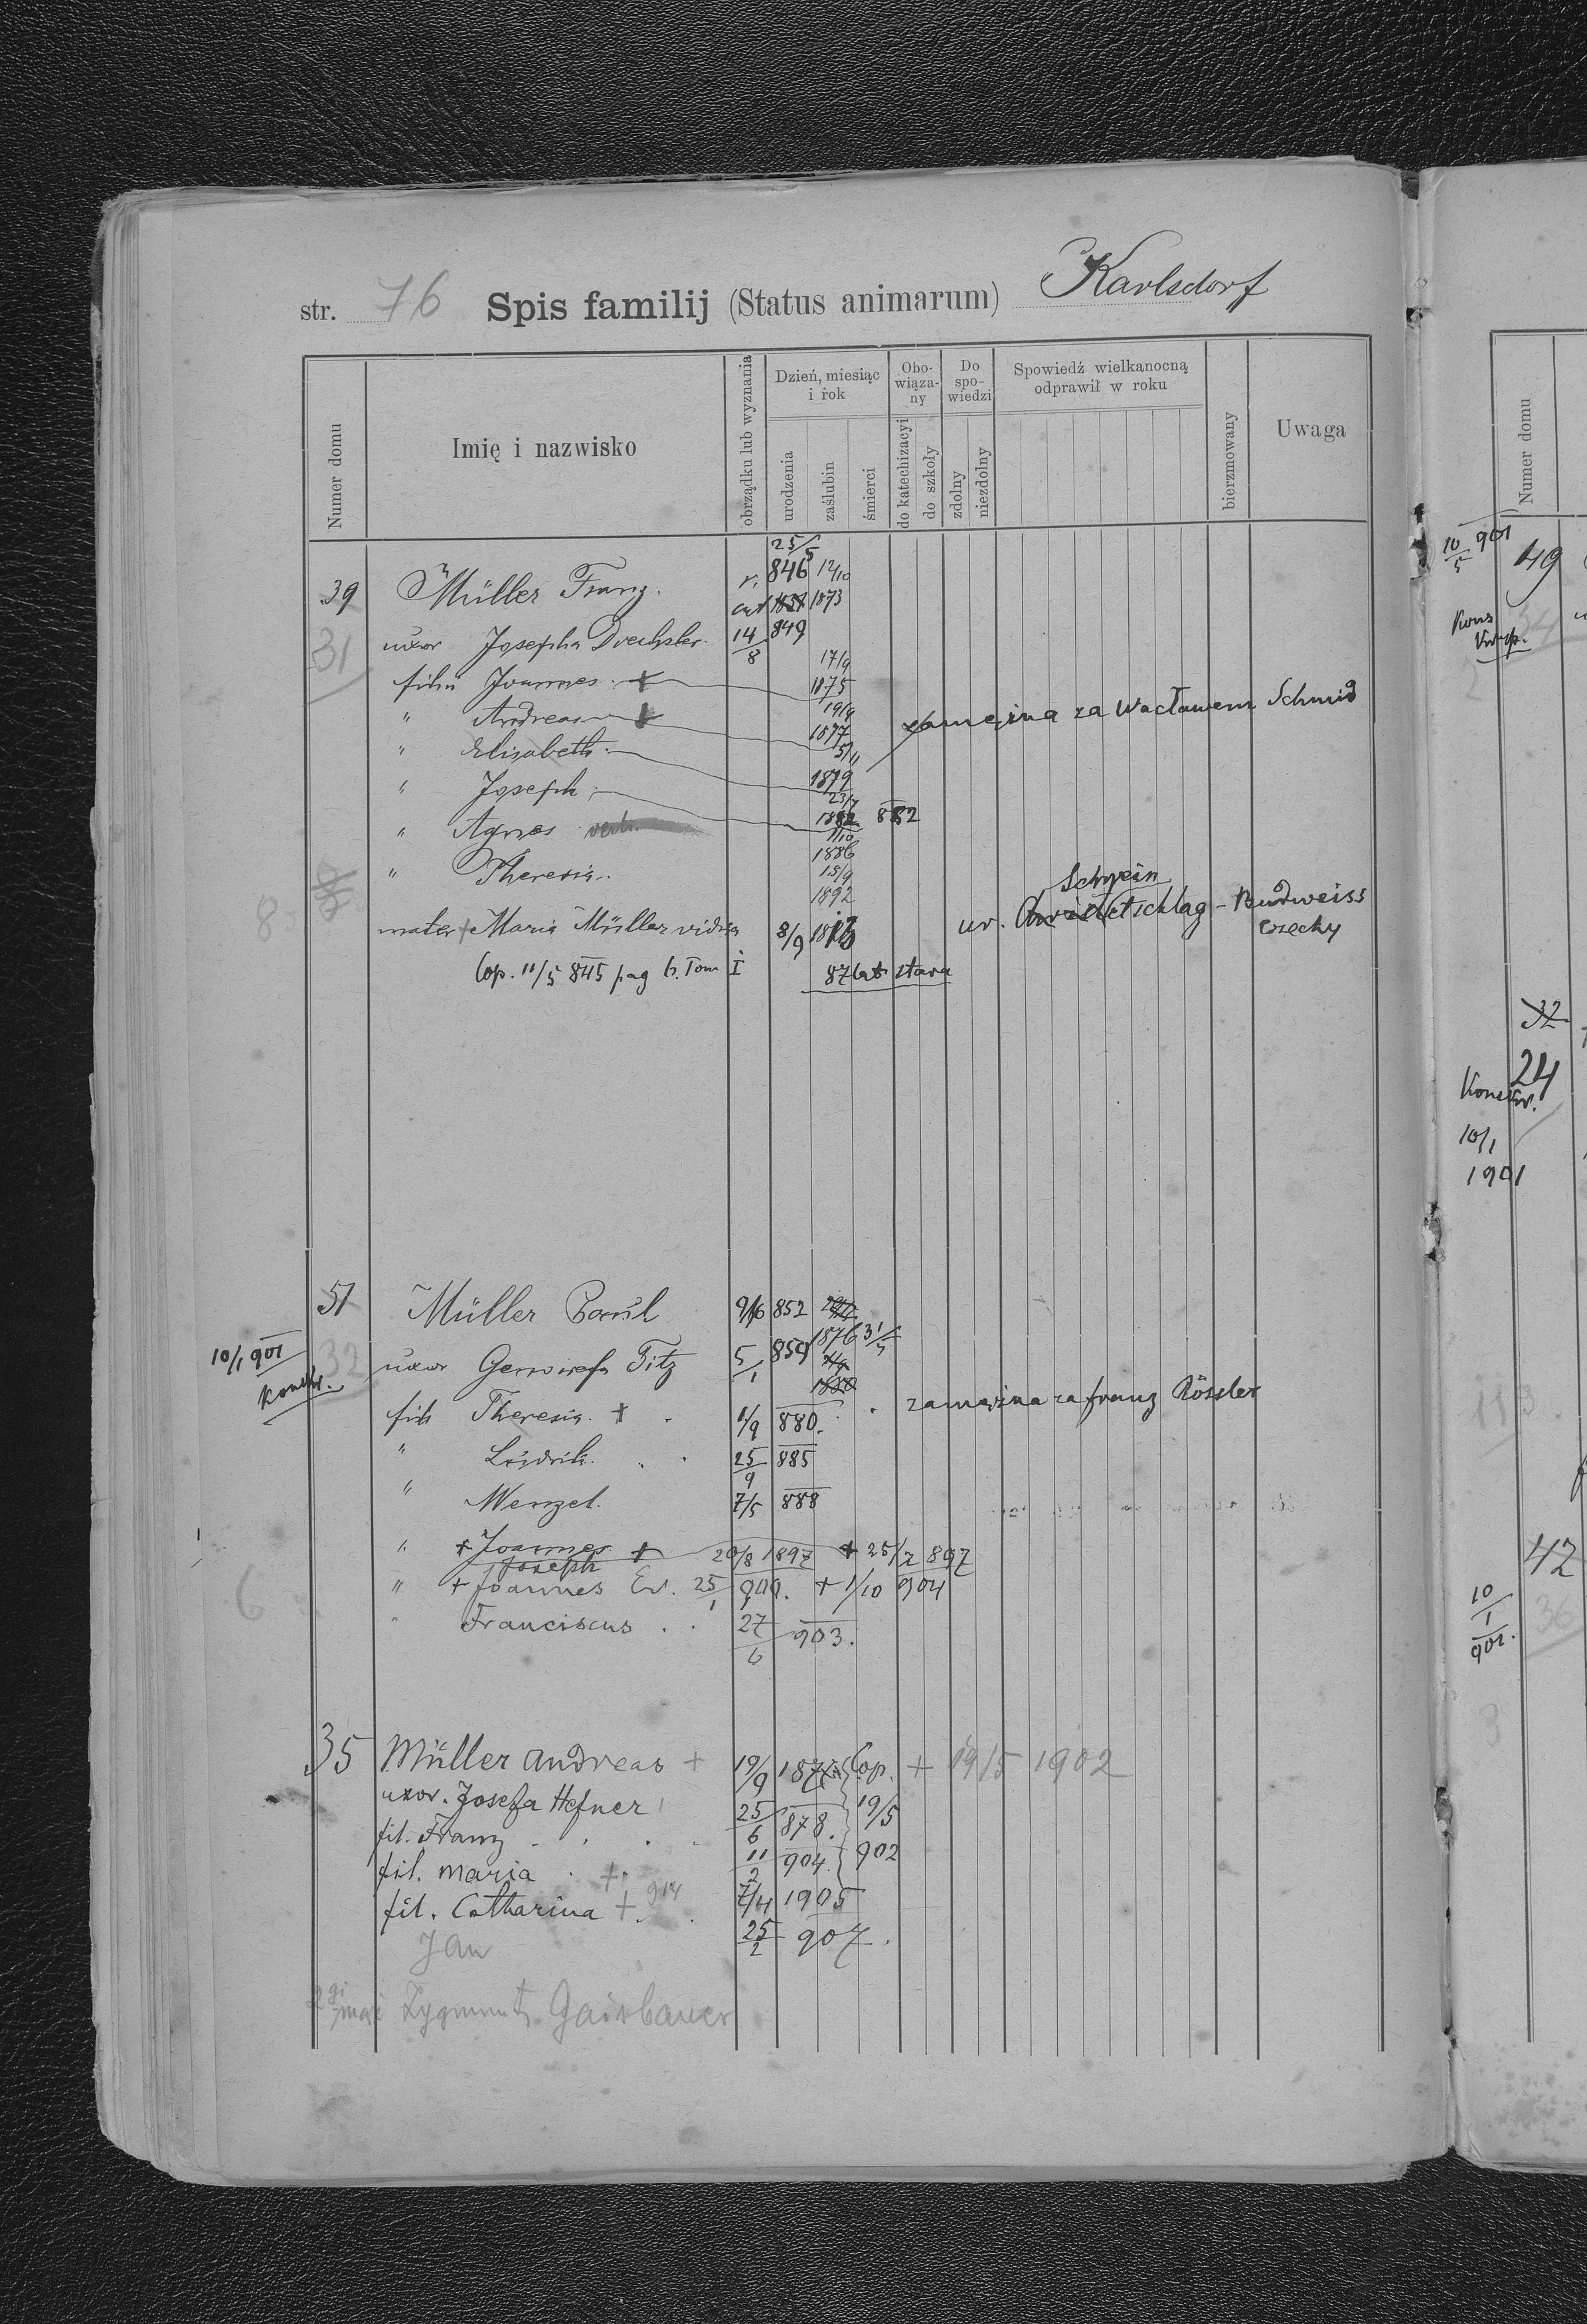 str. 76 Spis familij (Status animarum) Karlsdorf
Numer domu
Imię i nazwisko
obrządku lub wyznania
Dzień, miesiąc i rok
urodzenia
zaślubin
śmierci
Obo-wiąza-ny
do katechizacyi
do szkoły
Do spo-wiedzi
zdolny
niezdolny
Spowiedź wielkanocną odprawił w roku
bierzmowany
Uwaga
Numer domu
25/5
39 Müller Franz. r. 846 12/10
cat 1873
31 uxor Josepha Drechsler. 14/8 849
17/9
filii Joannes + 1875
19/9
" Andreas + 1877 zamężna za Wacławem Schmid
5/11
" Elisabeth 1879
" Joseph 23/7
1882 882
" Agnes 11/10
1886
" Theresia. 15/9
1892
Schwein
mater + Maria Müller vidua 8/9 1813 ur. etschlag - Budweiss
Czechy
Cop. 11/5 845 pag 6. Tom I 87 lat stara
8
51 Müller Paul 9/6 852
1876 31/5
10/1 901 32 uxor Genowefa Fitz 5/1 859
Konskr.
1880
fil. Theresia. + 1/9 880. zamężna za Franz Rössler
" Ludwik. 25/9 885
" Wenzel. 7/5 888
" + Joannes + 20/8 1897 + 25/7 897
Joseph
" + Joannes Ev. 25/1 900. + 1/10 904
6
" Franciscus 27/6 903.
35 Müller Andreas + 19/9 187 Cop. + 19/5 1902
uxor. Josefa Hefner 25/6 878. 19/5
fil. Franz 11/2 904. 902
fil. Maria + 7/4 1905
fil. Catharina + 914 25/2 907.
Jan
2gi mąż Zygmunt Gaisbauer
10/5 901 49
Kons
34
32
24
Konskr.
10/1
1901
113
42
10/1 901.
36
3